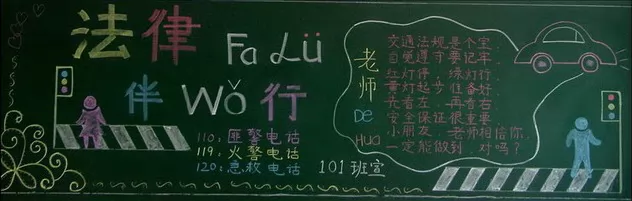 法律 Fa Lü
伴 Wǒ 行
110：匪警电话
119：火警电话
120：急救电话
101班宣
老师 De Hua
交通法规是个宝，
自觉遵守要记牢。
红灯停，绿灯行，
黄灯起步准备好。
先看左，再看右，
安全保证很重要。
小朋友，老师相信你，
一定能做到，对吗？